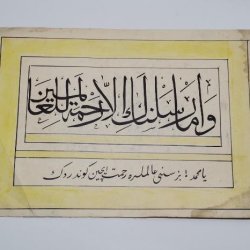 وما أرسلنك إلا رحمة للعلمين
يا محمد: بز سنى عالملره رحمت ايچين كوندردك